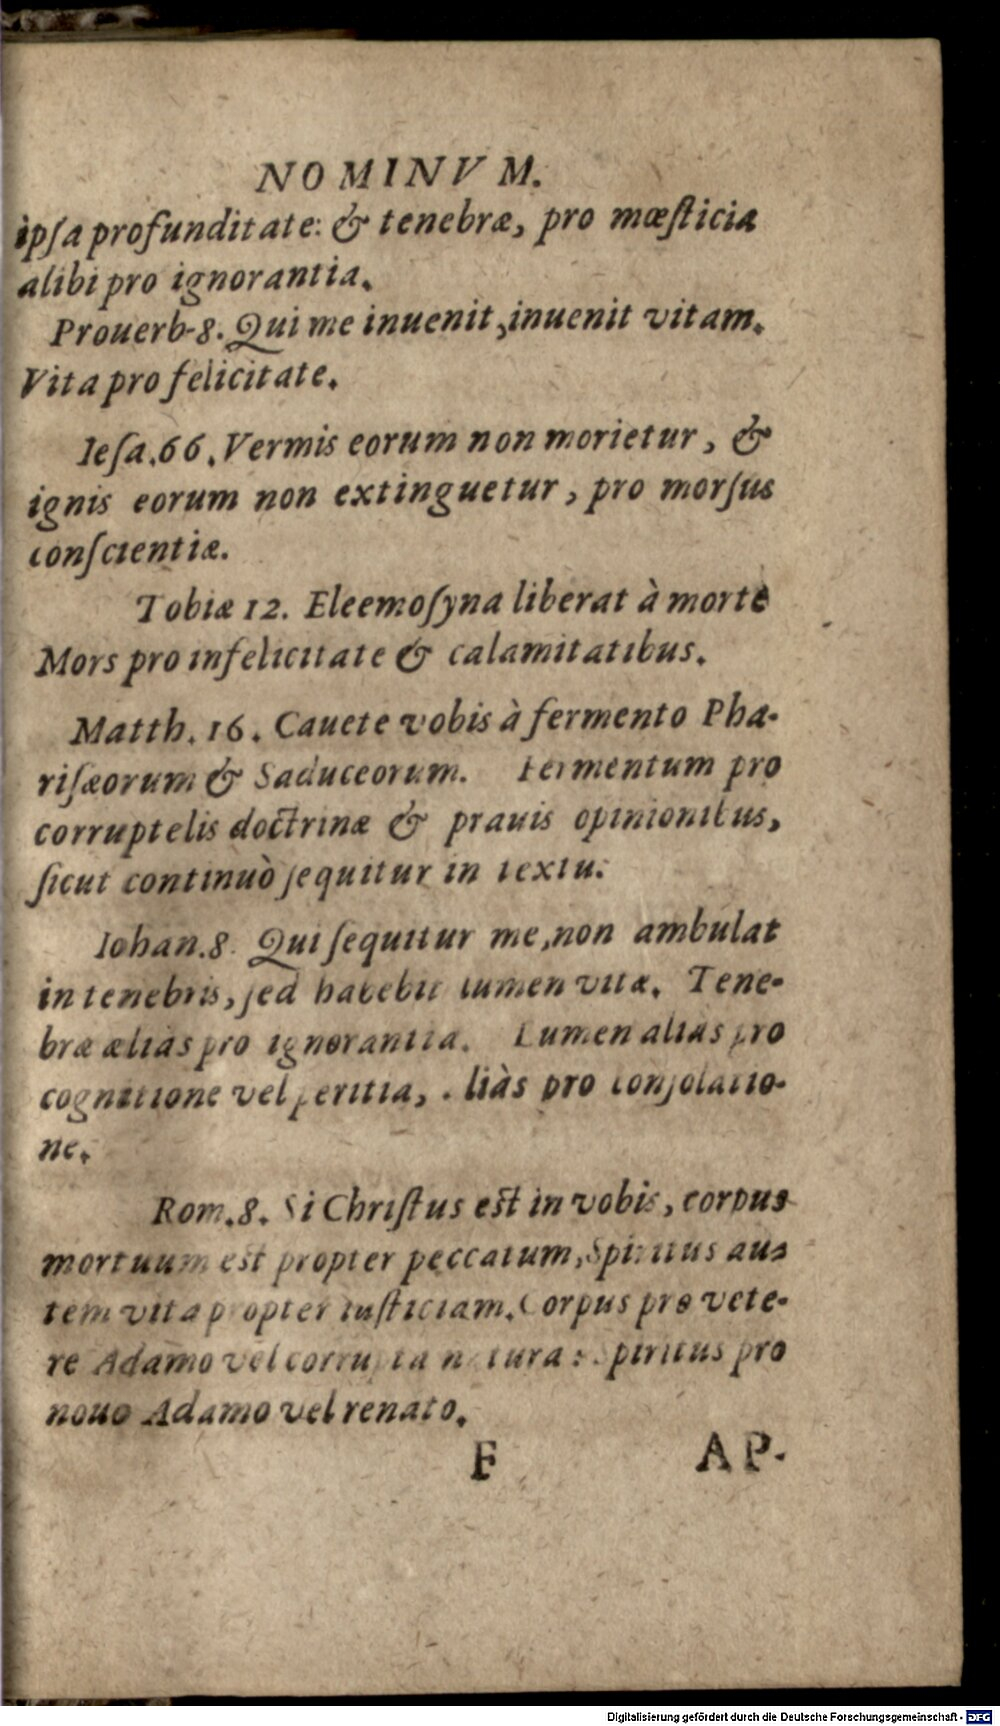 NOMINVM.
ipſa profunditate: & tenebræ, pro mœſticia
alibi pro ignorantia.
Prouerb-8. Qui me inuenit, inuenit vitam.
Vita pro felicitate.
Ieſa. 66. Vermis eorum non morietur, &
ignis eorum non extinguetur, pro morſus
conſcientiæ.
Tobiæ 12. Eleemoſyna liberat à morte
Mors pro infelicitate & calamitatibus.
Matth. 16. Cauete vobis à fermento Pha-
riſæorum & Saduceorum. Fermentum pro
corruptelis doctrinæ & prauis opinionibus,
ſicut continuò ſequitur in textu.
Iohan. 8. Qui ſequitur me, non ambulat
in tenebris, ſed habebit lumen vitæ. Tene-
bræ æliàs pro ignorantia. Lumen aliàs pro
cognitione vel peritia, aliàs pro conſolatio-
ne.
Rom. 8. Si Chriſtus eſt in vobis, corpus
mortuum eſt propter peccatum, Spiritus au-
tem vita propter iuſticiam. Corpus pro vete-
re Adamo vel corrupta natura: Spiritus pro
nouo Adamo vel renato.
F AP-
Digitalisierung gefördert durch die Deutsche Forschungsgemeinschaft - DFG